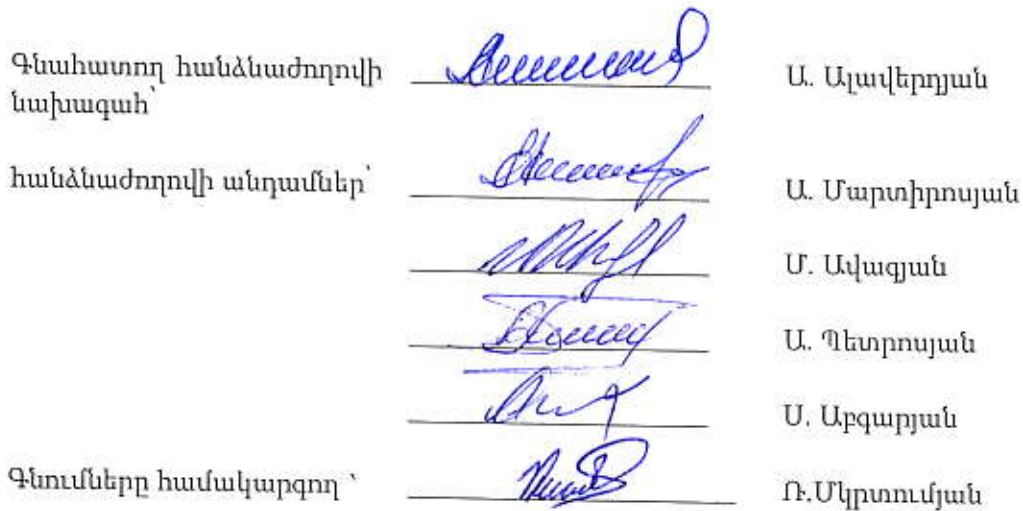 Գնահատող հանձնաժողովի
նախագահ՝ Ա. Ալավերդյան
հանձնաժողովի անդամներ՝ Ա. Մարտիրոսյան
Մ. Ավագյան
Ա. Պետրոսյան
Ս. Աբգարյան
Գնումները համակարգող ՝ Ռ.Մկրտումյան